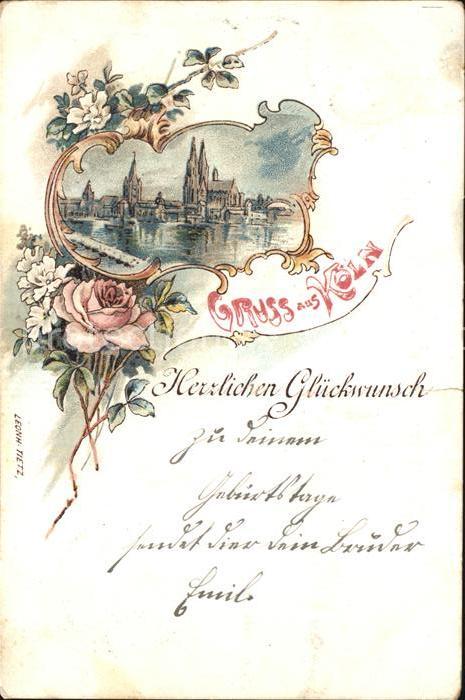 GRUSS AUS KÖLN
Herzlichen Glückwunsch
zu deinem
Geburtstage
sendet dier dein Bruder
Emil.
LEONH. TIETZ,